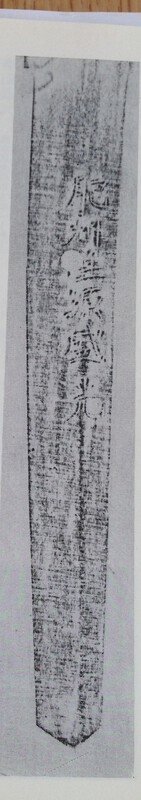 肥州住源盛光